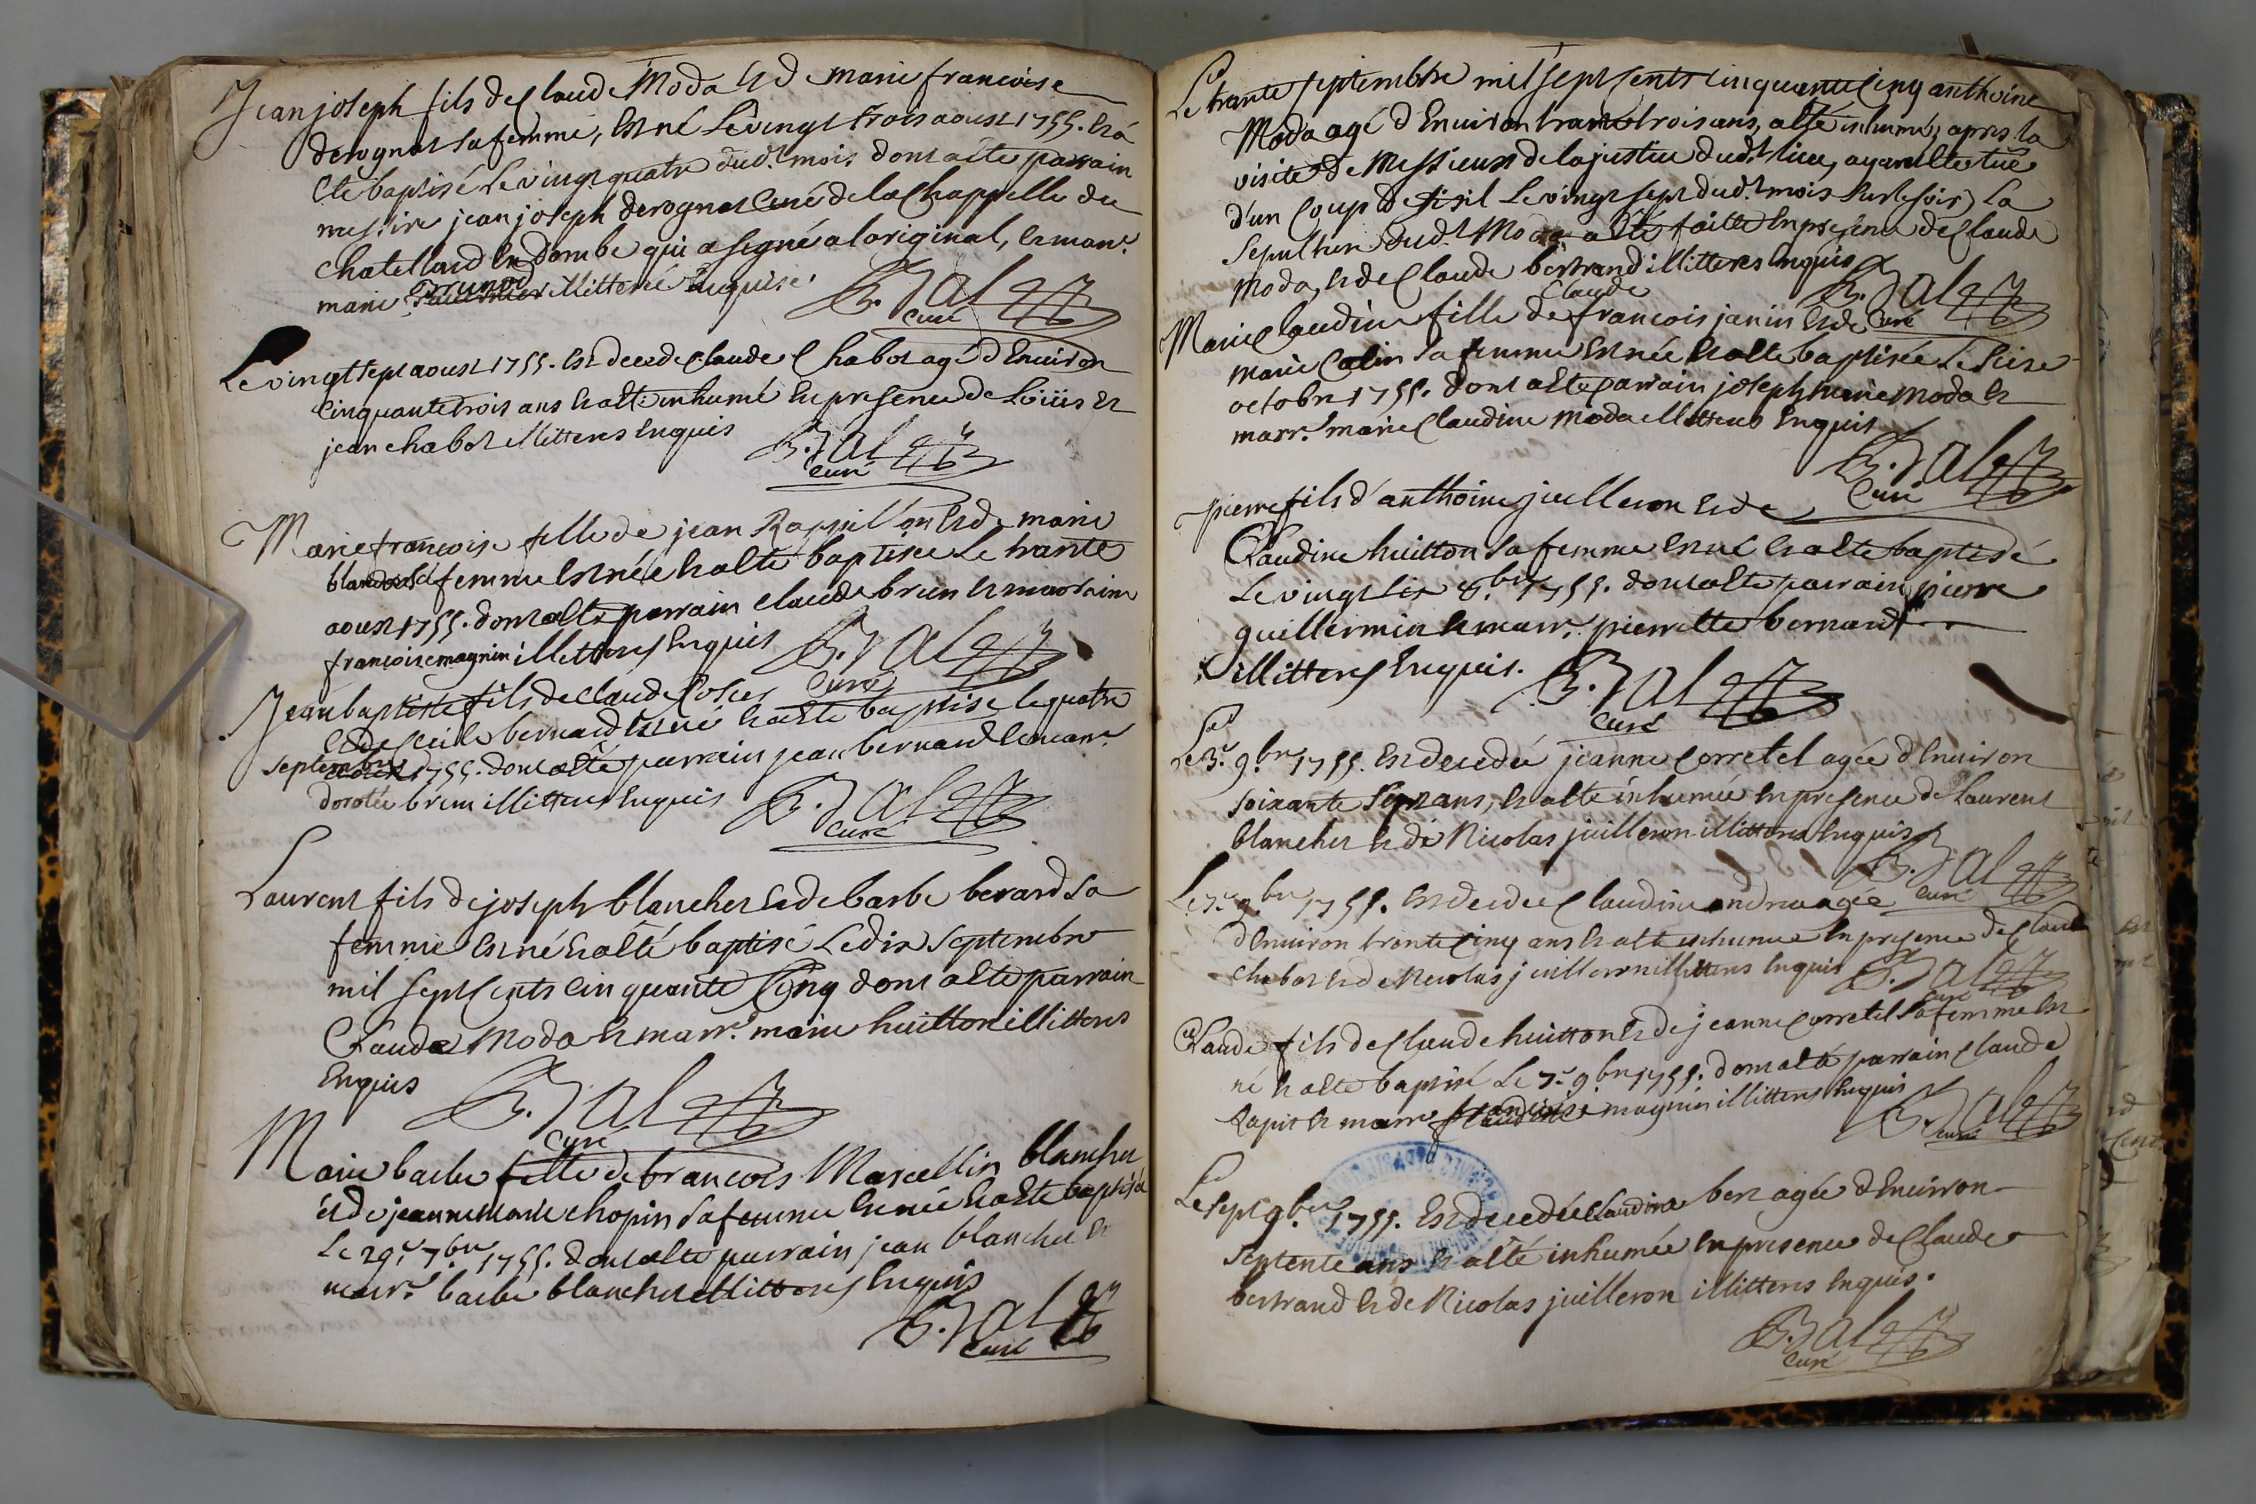 Jean joseph fils de Claude Moda et de marie francoise
derognat sa femme, est né Le vingt trois aoust 1755. et a
ete baptisé Le vingt quatre dud.t mois dont a ete parrain
messire jean joseph derognat Curé de la Chappelle du
Chatellard En dombe qui a signé a l'original, et marr.e
marie illitteré Enquise.
B. Jal
Curé
Le vingt sept aoust 1755. est decedé Claude Chabot agé d'Environ
Cinquante trois ans et a ete inhumé En presence de Loüis et
jean chabot illitteres Enquis
B. Jal
Curé
Marie francoise fille de jean Rappillon et de marie
blanc sa femme est née et a ete baptisée Le trante
aoust 1755. dont a ete parrain claude brun et marraine
francoise magnin illitteres Enquis
B. Jal
Curé
Jean baptiste fils de Claude
et de Cecile bernard est né et a ete baptisé le quatre
septembre 1755. dont a ete parrain jean bernard et marr.e
dorotée brun illitteres Enquis
B. Jal
Curé
Laurent fils de joseph blancher et de barbe berard sa
femme est né et a eté baptisé Le dix septembre
mil sept Cents cinquante Cinq dont a ete parrain
Claude Moda et marr.e marie huitton illitteres
Enquis
B. Jal
Curé
Marie barbe fille de francois Marcellin blancher
et de jeanne Marie chopin sa femme est née et a ete baptisée
Le 29.e 7.bre 1755. dont a ete parrain jean blancher et
marr.e barbe blancher illitteres Enquis
B. Jal
Curé
Le trante septembre mil sept Cents Cinquante Cinq anthoine
Moda agé d'Environ trante trois ans, a eté inhumé, apres la
visite de Messieurs de la justice dud.t lieu, ayant ete tué
d'un Coup de fisil Le vingt sept dud.t mois sur le soir, La
Sepulture dud.t Moda a eté faitte En presence de Claude
Moda, et de Claude bertrand illitteres Enquis
B. Jal
Curé
Claude
Marie Claudine fille de francois janin et de
marie Colin sa femme est née et a ete baptisée Le seize
octobre 1755. dont a ete parrain joseph marie Moda et
marr.e marie Claudine Moda illitteres Enquis
B. Jal
Curé
pierre fils d'anthoine juilleron et de
Claudine huitton sa femme est né et a ete baptisé
Le vingt six 8.bre 1755. dont a ete parrain pierre
guillermin et marr.e pierrette bernard
illitteres Enquis.
B. Jal
Curé
Le 3.e 9.bre 1755. est decedée jeanne Corretel agée d'Environ
soixante sept ans, et a eté inhumée En presence de Laurent
blancher et de Nicolas juilleron illitteres Enquis
B. Jal
Curé
Le 7.e 9.bre 1755. est decedée Claudine andrea agée
d'Environ trente Cinq ans et a ete inhumée En presence de Claude
chabot et de Nicolas juilleron illitteres Enquis
B. Jal
Curé
Claude fils de Claude huitton et de jeanne Corretel sa femme est
né et a ete baptisé Le 7.e 9.bre 1755. dont a eté parrain Claude
Rapit et marr.e francoise magnin illitteres Enquis
B. Jal
Curé
Le sept 9.bre 1755. est decedée Claudine berz agée d'Environ
septente ans et a eté inhumée En presence de Claude
bertrand et de Nicolas juilleron illitteres Enquis.
B. Jal
Curé